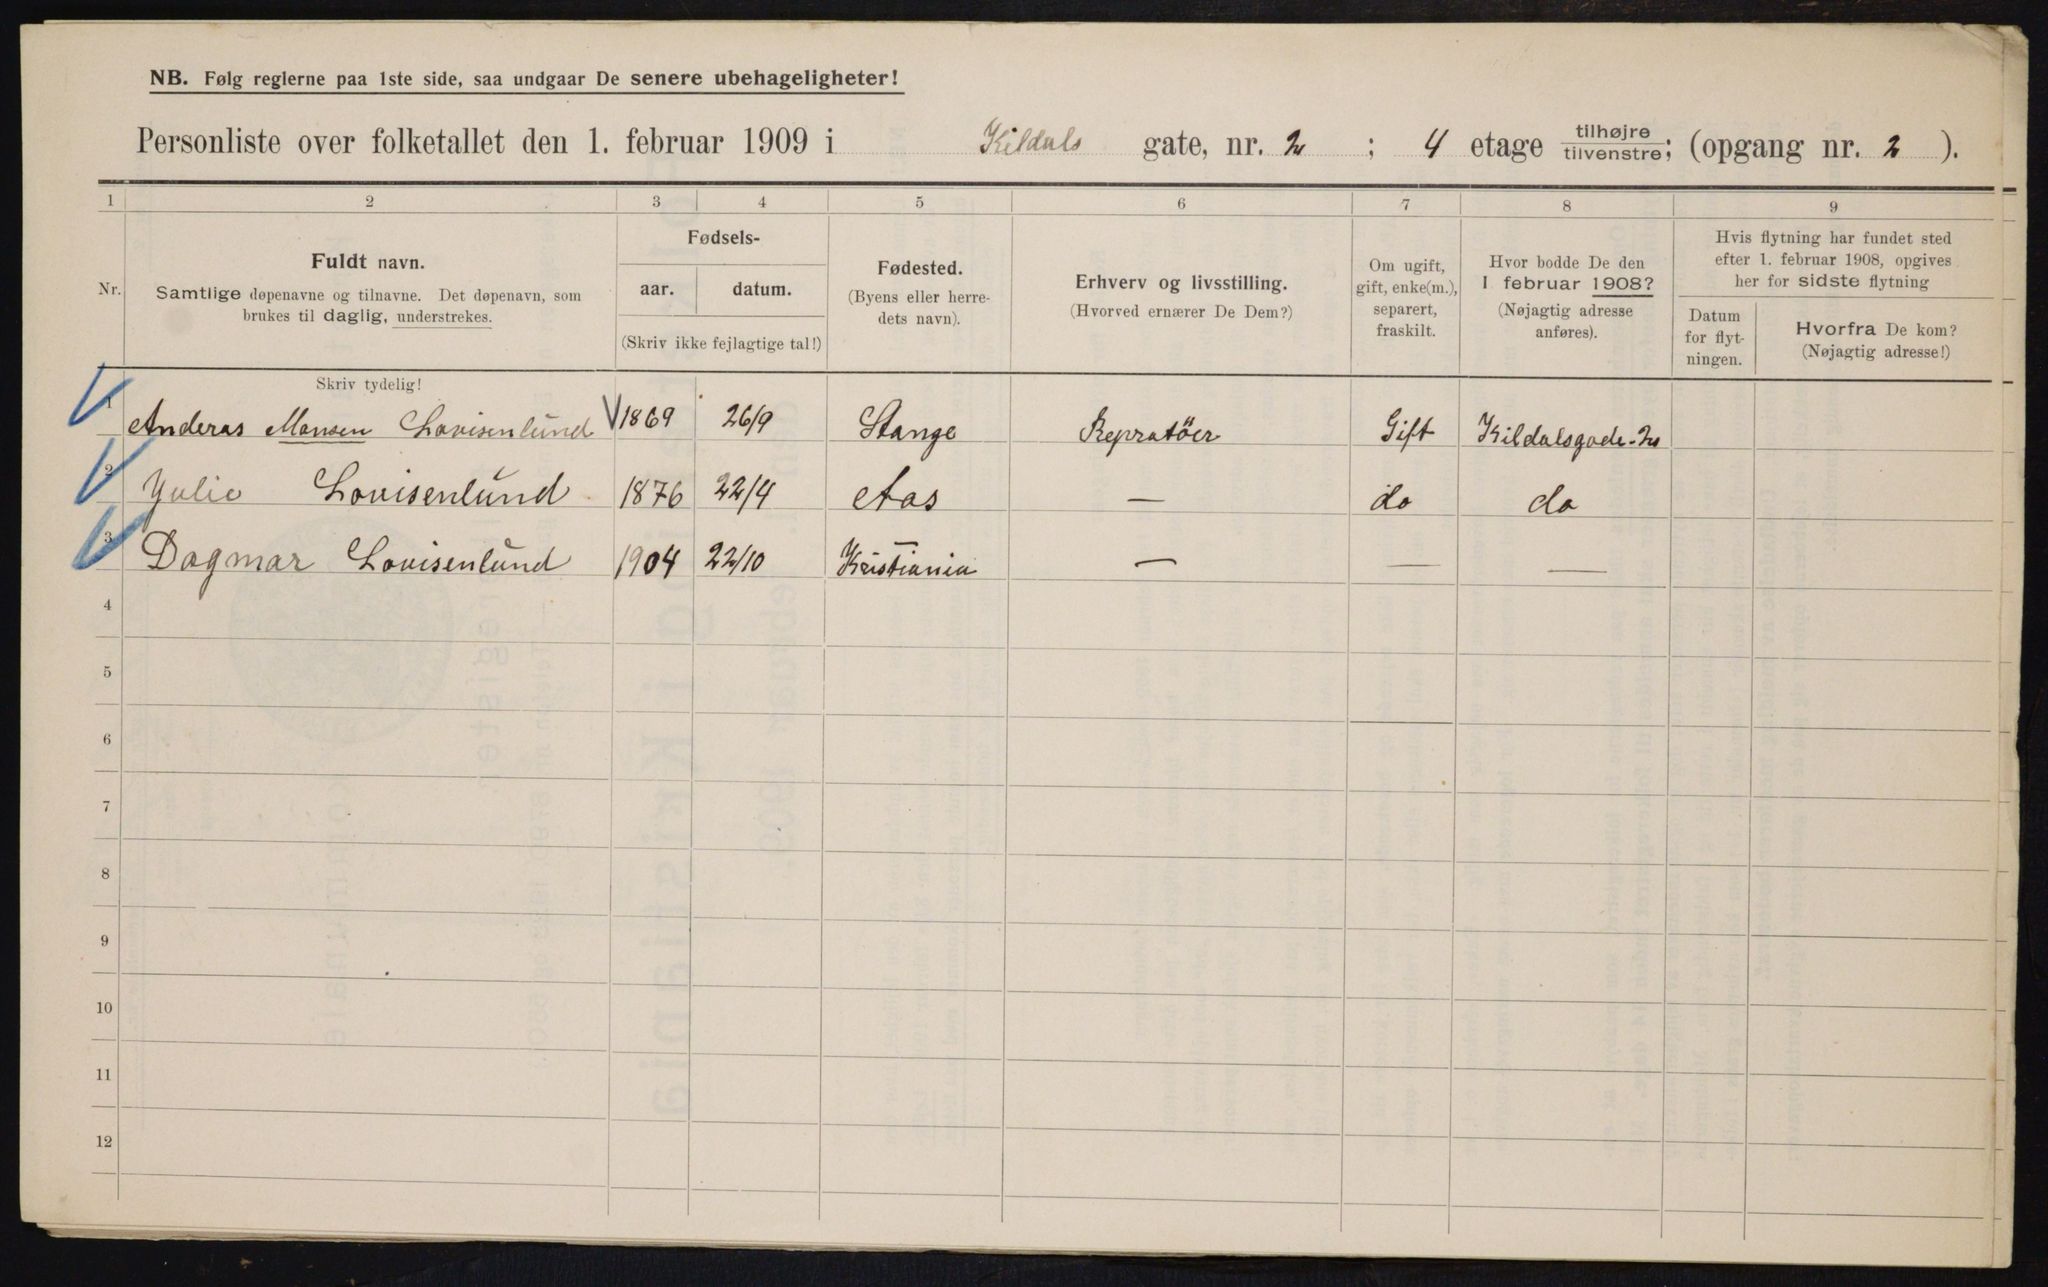 NB. Følg reglerne paa 1ste side, saa undgaar De senere ubehageligheter!
Personliste over folketallet den 1. februar 1909 i Kildals gate, nr. 2 ; 4 etage tilhøjre/tilvenstre; (opgang nr. 2 ).
1 2 3 4 5 6 7 8 9
Nr.
Fuldt navn.
Samtlige døpenavne og tilnavne. Det døpenavn, som
brukes til daglig, understrekes.
Fødsels-
aar. datum.
(Skriv ikke fejlagtige tal!)
Fødested.
(Byens eller herre-
dets navn).
Erhverv og livsstilling.
(Hvorved ernærer De Dem?)
Om ugift,
gift, enke(m.),
separert,
fraskilt.
Hvor bodde De den
1 februar 1908?
(Nøjagtig adresse
anføres).
Hvis flytning har fundet sted
efter 1. februar 1908, opgives
her for sidste flytning
Datum
for flyt-
ningen.
Hvorfra De kom?
(Nøjagtig adresse!)
Skriv tydelig!
1 Anderas Monsen Lovisenlund 1869 26/9 Stange Repratöer Gift Kildalsgade-2
2 Julie Lovisenlund 1876 22/4 Aas — do do
3 Dagmar Lovisenlund 1904 22/10 Kristiania — — —
4
5
6
7
8
9
10
11
12